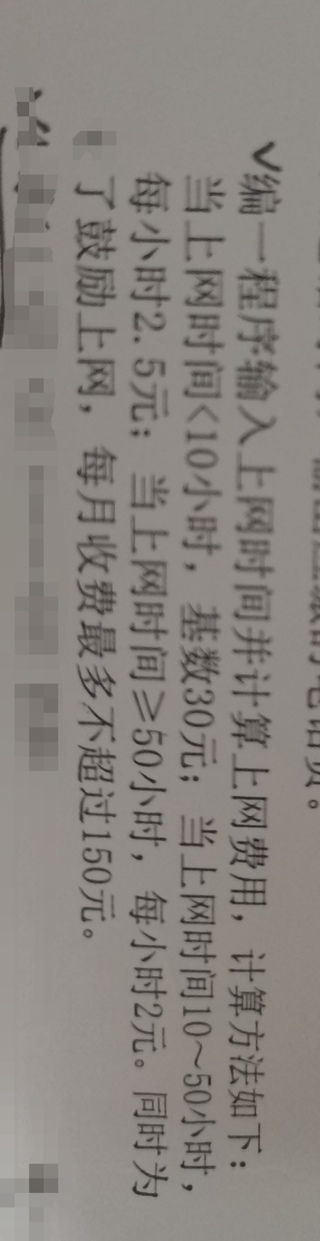 ✓编一程序输入上网时间并计算上网费用，计算方法如下：
当上网时间<10小时，基数30元；当上网时间10~50小时，
每小时2.5元；当上网时间≥50小时，每小时2元。同时为
了鼓励上网，每月收费最多不超过150元。